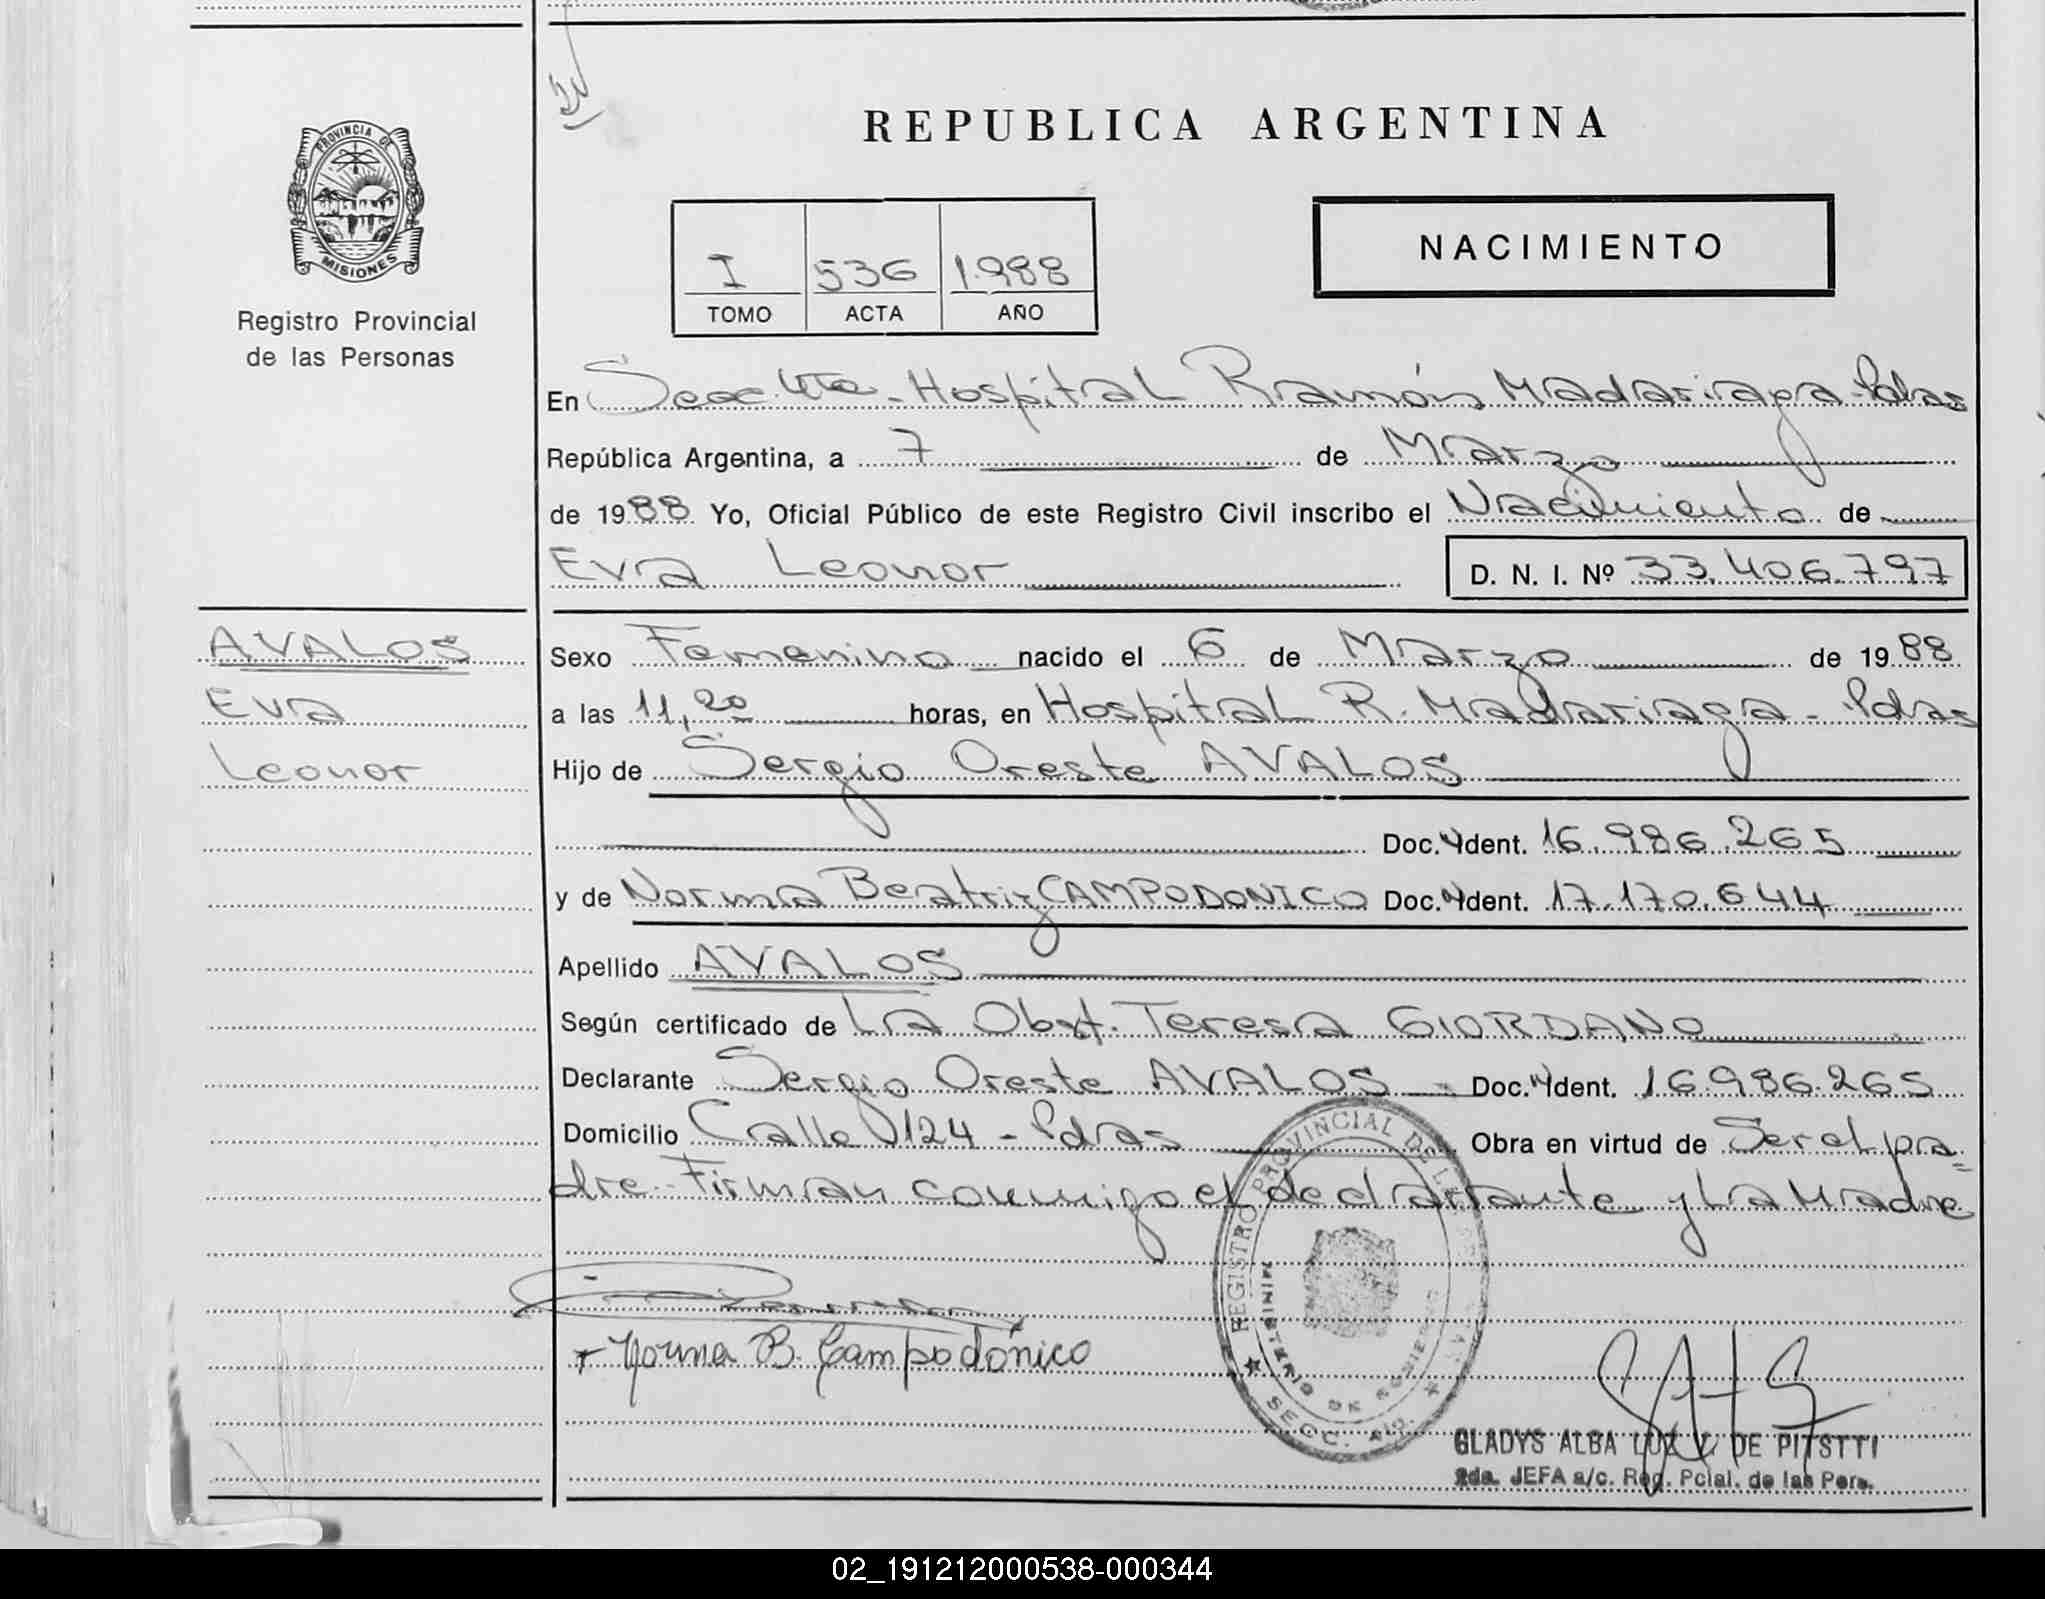 REPUBLICA ARGENTINA
PROVINCIA DE
MISIONES
Registro Provincial
de las Personas
I 536 1.988
TOMO ACTA AÑO
NACIMIENTO
En Secc. 4ta - Hospital Ramón Madariaga - Pdas
República Argentina, a 7 de Marzo
de 1988 Yo, Oficial Público de este Registro Civil inscribo el Nacimiento de
Eva Leonor D. N. I. Nº 33.406.797
AVALOS
Eva
Leonor
Sexo Femenino nacido el 6 de Marzo de 1988
a las 11,20 horas, en Hospital R. Madariaga - Pdas
Hijo de Sergio Oreste AVALOS
Doc. Ident. 16.986.265
y de Norma Beatriz CAMPODONICO Doc. Ident. 17.170.644
Apellido AVALOS
Según certificado de La Obst. Teresa GIORDANO
Declarante Sergio Oreste AVALOS - Doc. Ident. 16.986.265
Domicilio Calle 124 - Pdas Obra en virtud de Ser el pa=
dre - Firman conmigo el declarante y La Madre
Norma B. Campodónico
REGISTRO PROVINCIAL DE
MINISTERIO DE GOBIERNO
SECC.
GLADYS ALBA LUZ DE PITSTTI
2da. JEFA a/c. Reg. Pcial. de las Pers.
02_191212000538-000344